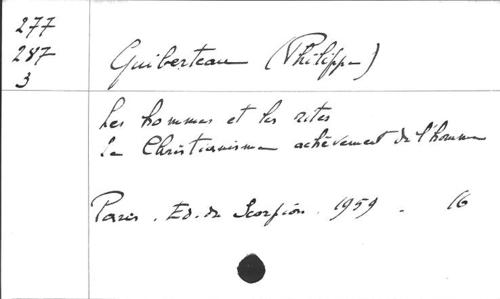 277
287
3
Guiberteau (Philippe)
Les hommes et les rites
Le Christianisme achèvement de l'homme
Paris. Ed. du Scorpion. 1959 - 16